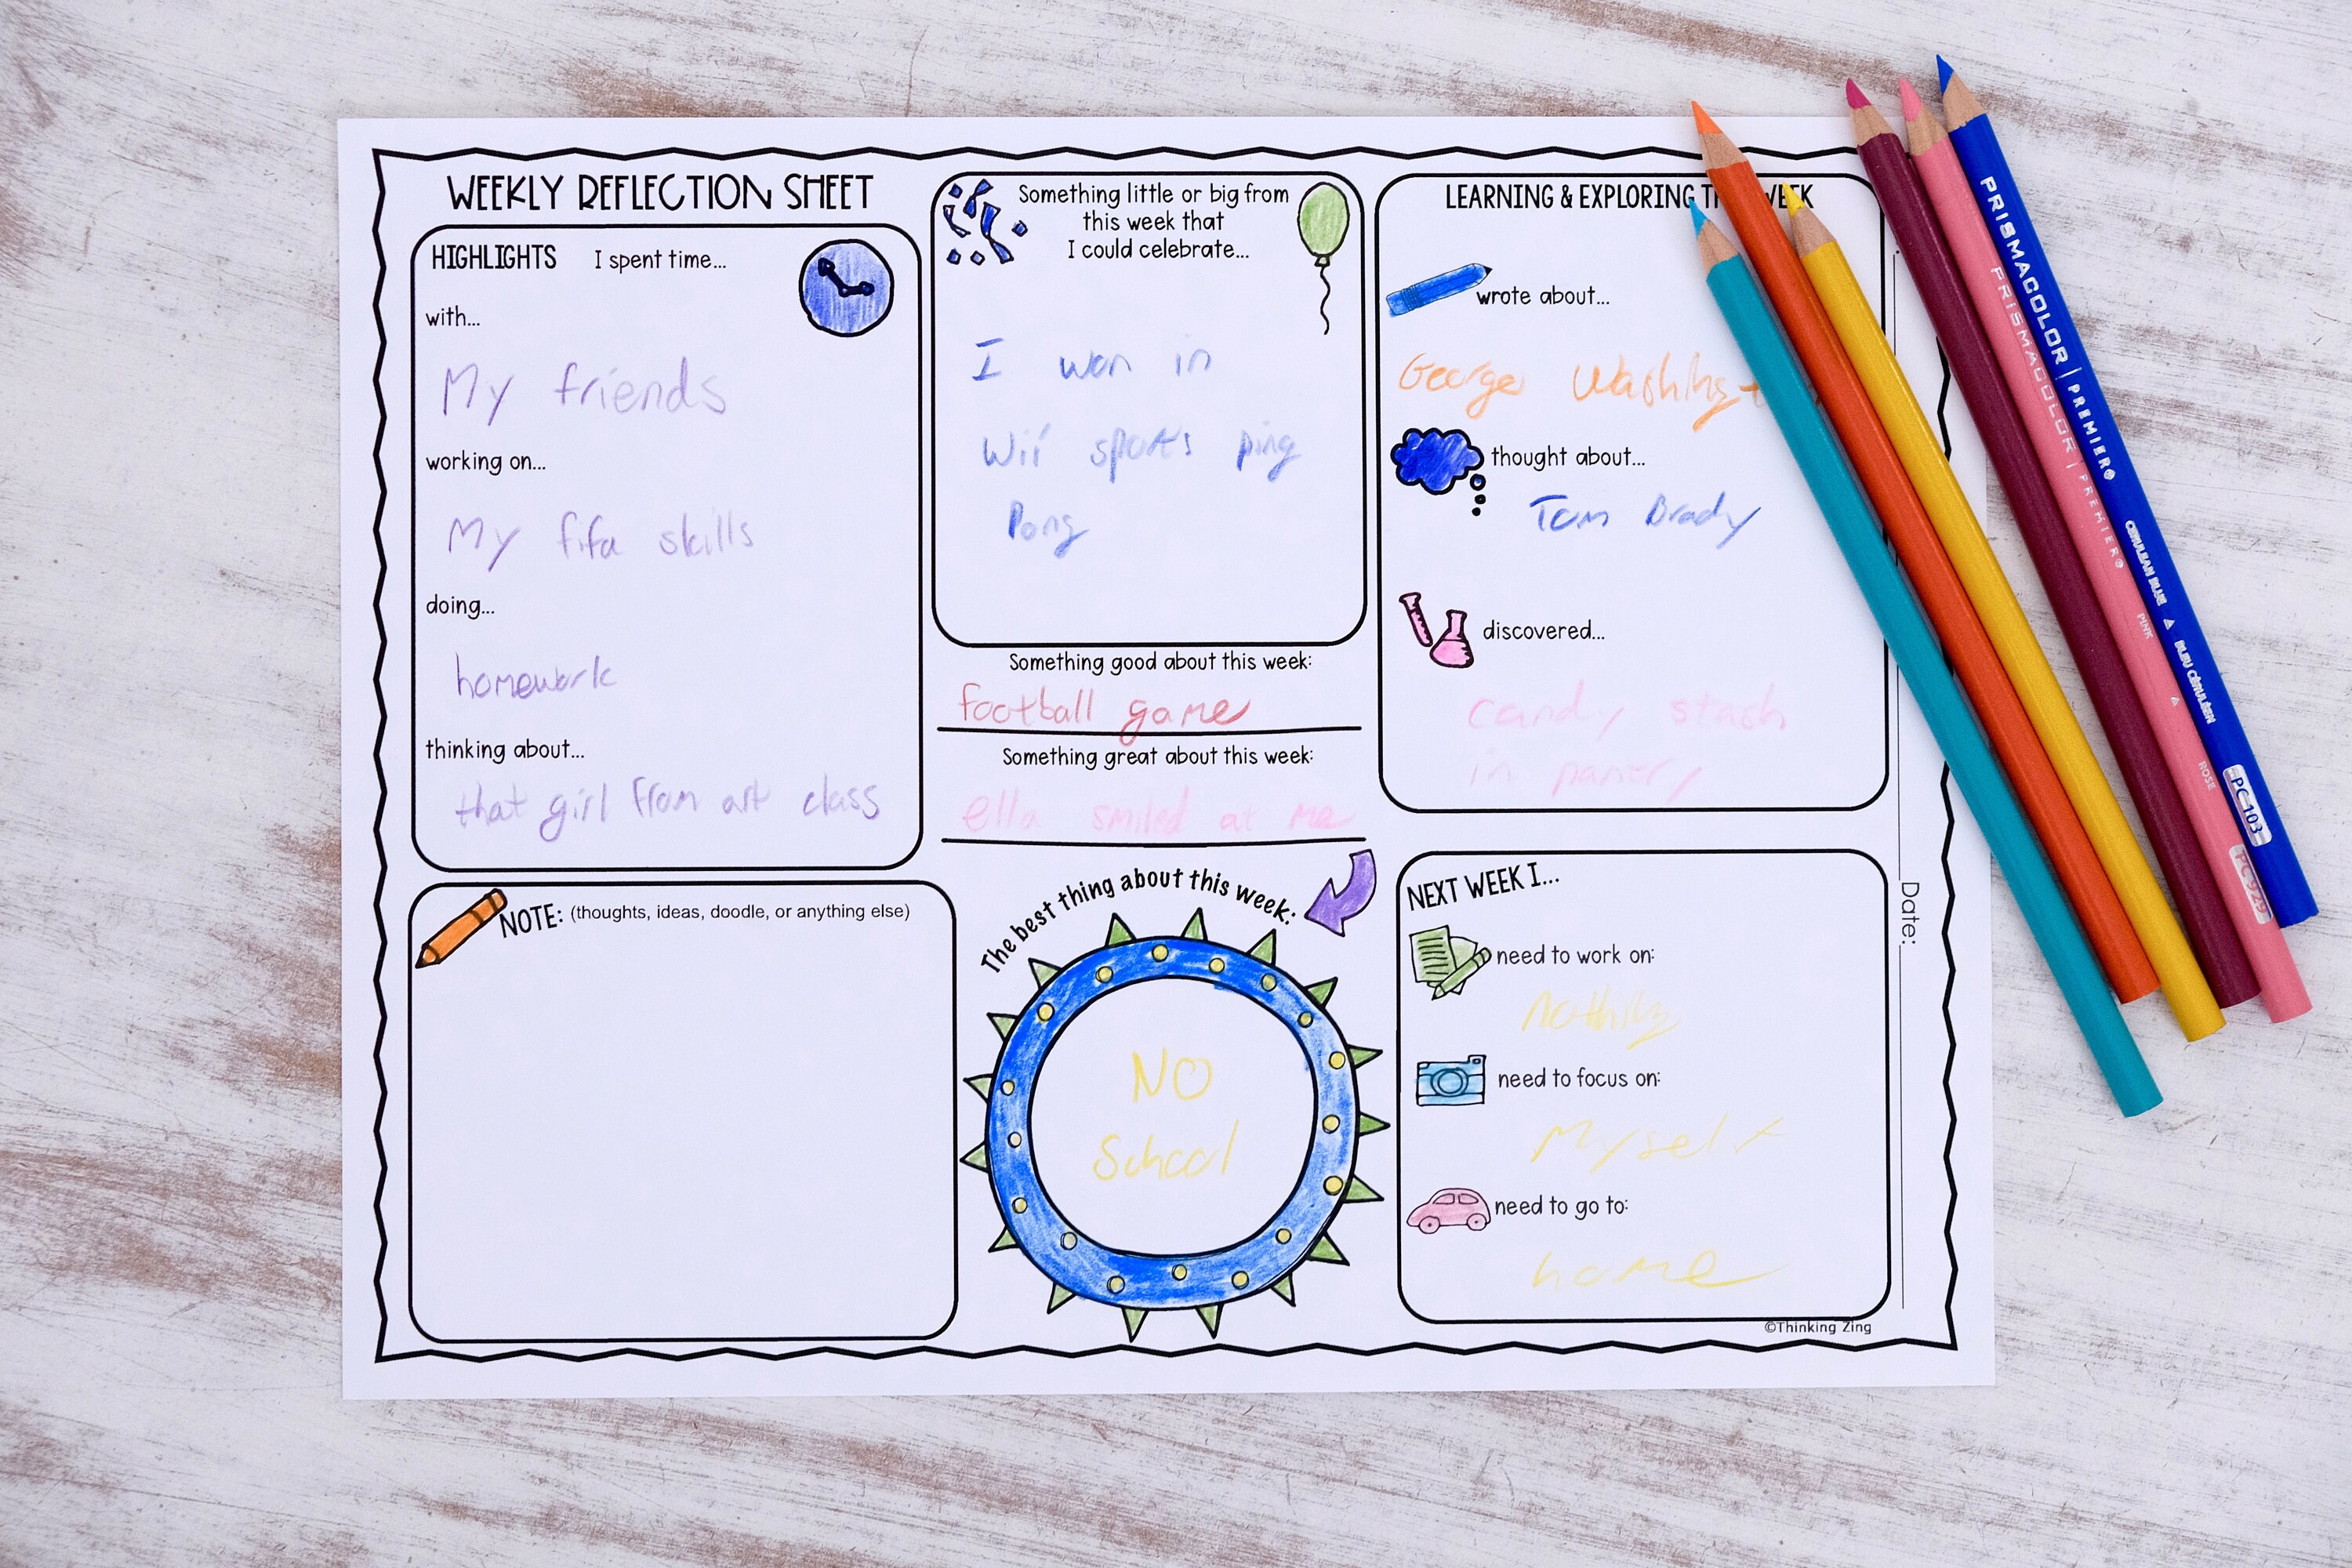 WEEKLY REFLECTION SHEET
HIGHLIGHTS I spent time...
with...
My friends
working on...
My fifa skills
doing...
homework
thinking about...
that girl from art class
NOTE: (thoughts, ideas, doodle, or anything else)
Something little or big from
this week that
I could celebrate...
I won in
Wii sports ping
Pong
Something good about this week:
football game
Something great about this week:
ella smiled at me
The best thing about this week:
NO
School
LEARNING & EXPLORING WEEK
wrote about...
George Washingt
thought about...
Tom Brady
discovered...
candy stash
in pantry
NEXT WEEK I...
need to work on:
nothing
need to focus on:
Myself
need to go to:
home
©Thinking Zing
Date:
PRISMACOLOR | PREMIER CERULEAN BLUE BLEU CÉRULÉEN PC 103
PRISMACOLOR | PREMIER PINK ROSE PC929